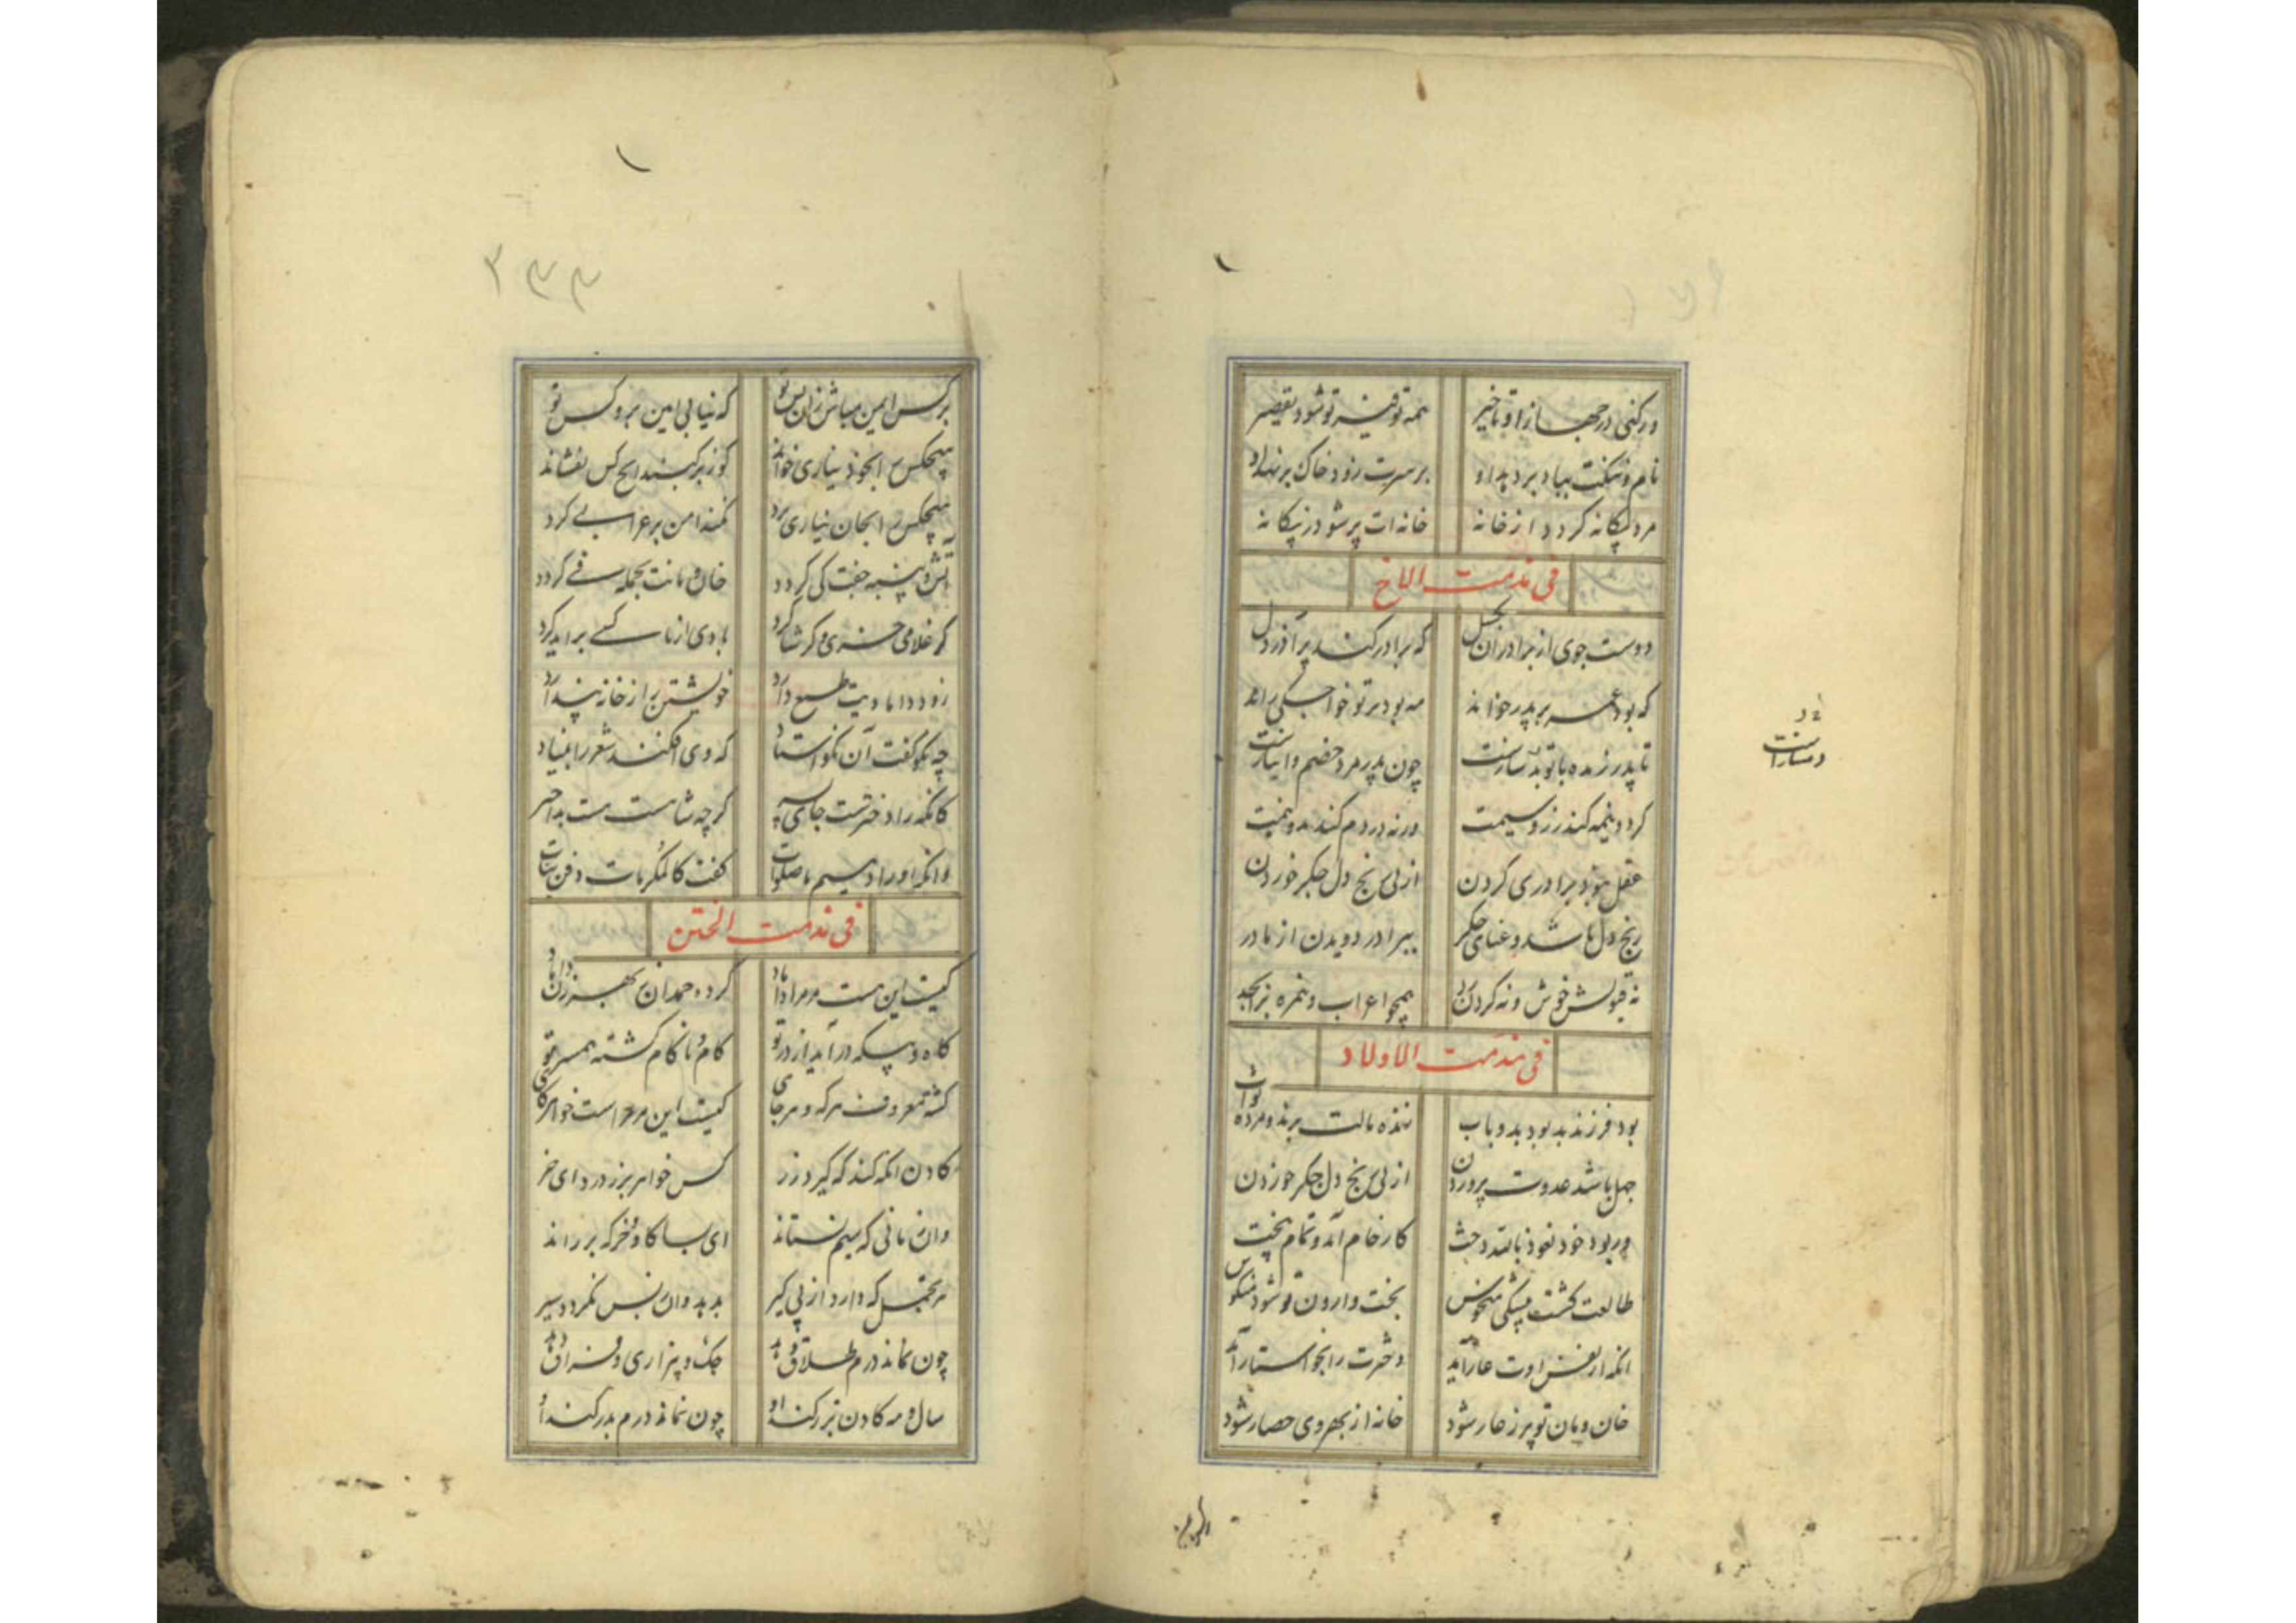 ور کنی در جهاز او تاخیر همه توفیر تو شود تقصیر
نام و ننگت بباد بر دهد او بر سرت زود خاک بر نهد او
مرد بیگانه گردد از خانه خانه ات پر شود ز بیگانه
فی مذمت الاخ
دوست جوی از برادران بگسل که برادر کند پر آذر دل
که بود غمر بر پدر خواند مه بود بر تو خواجگی راند
تا پدر زنده با تو چون پدر مرد خصم وانبازست
گرد و نیمه کند زر و سیمت ورنه در دم کند بدو نیمت
عقل نبود برادری کردن از پی رنج دل جگر خوردن
رنج دل باشد و عنای جگر ببرادر دویدن از مادر
نه قبولش خوش و نه کردن رد همچو اعراب و نمره بر ابجد
فی مذمت الاولاد
بود فرزند بد بود بدو باب زنده مالت برند و مرده ثواب
جهل باشد عدوت پروردن از پی رنج دل جگر خوردن
ور بود خود نعوذ بالله دخت کار خام آمد و تمام نپخت
طالعت گشت بیشکی منحوس بخت وارون تو شود منکوس
انکه از نقش اوت عار آید دخترت را بخواستار آید
خان و مان تو پر ز عار شود خانه از بهر وی حصار شود
دمسازست
۲۳۳
بر کس ایمن مباش زان پس تو که نیابی امین برو کس تو
هیچکس را بخود نیاری خواند
هیچکس را بجان نیاری برد
آتش و پنبه جفت کی گردد خان و مانت بجمله فی گردد
گر غلامی خری و گر شاگرد با وی از ناکسی برآید گرد
زود دامادیت طمع دارد خویشتن را ز خانه پندارد
چه نکو گفت آن نکو استاد که وی افکند شعر را بنیاد
کانکه را دختر است جای پسر گر چه شاهست هست بد اختر
وانکه او را دهیم ما صلوات گفت کالمکرمات دفن بنات
فی مذمت الختن
کیست این هست مر مرا داماد کرده حمدان بهر زن داماد
گاه و بیگه در آید از در تو کام و ناکام گشته همسر تو
گشته معروف هر که و هر جای کیست این مر مراست خواهر گای
گادن آنکه کند که گیرد زر کس خواهر بزر درد ای خر
وان زمانی که سیم نستاند ای بسا گاو و خر که بر راند
هر تجمل که دارد از پی کیر بدهد وان نفس نگردد سیر
چون نماند درم طلاق دهد جنگ و بیزاری و فراق دهد
سال و مه گادن بزر کند او چون نماند درم بدر کند او